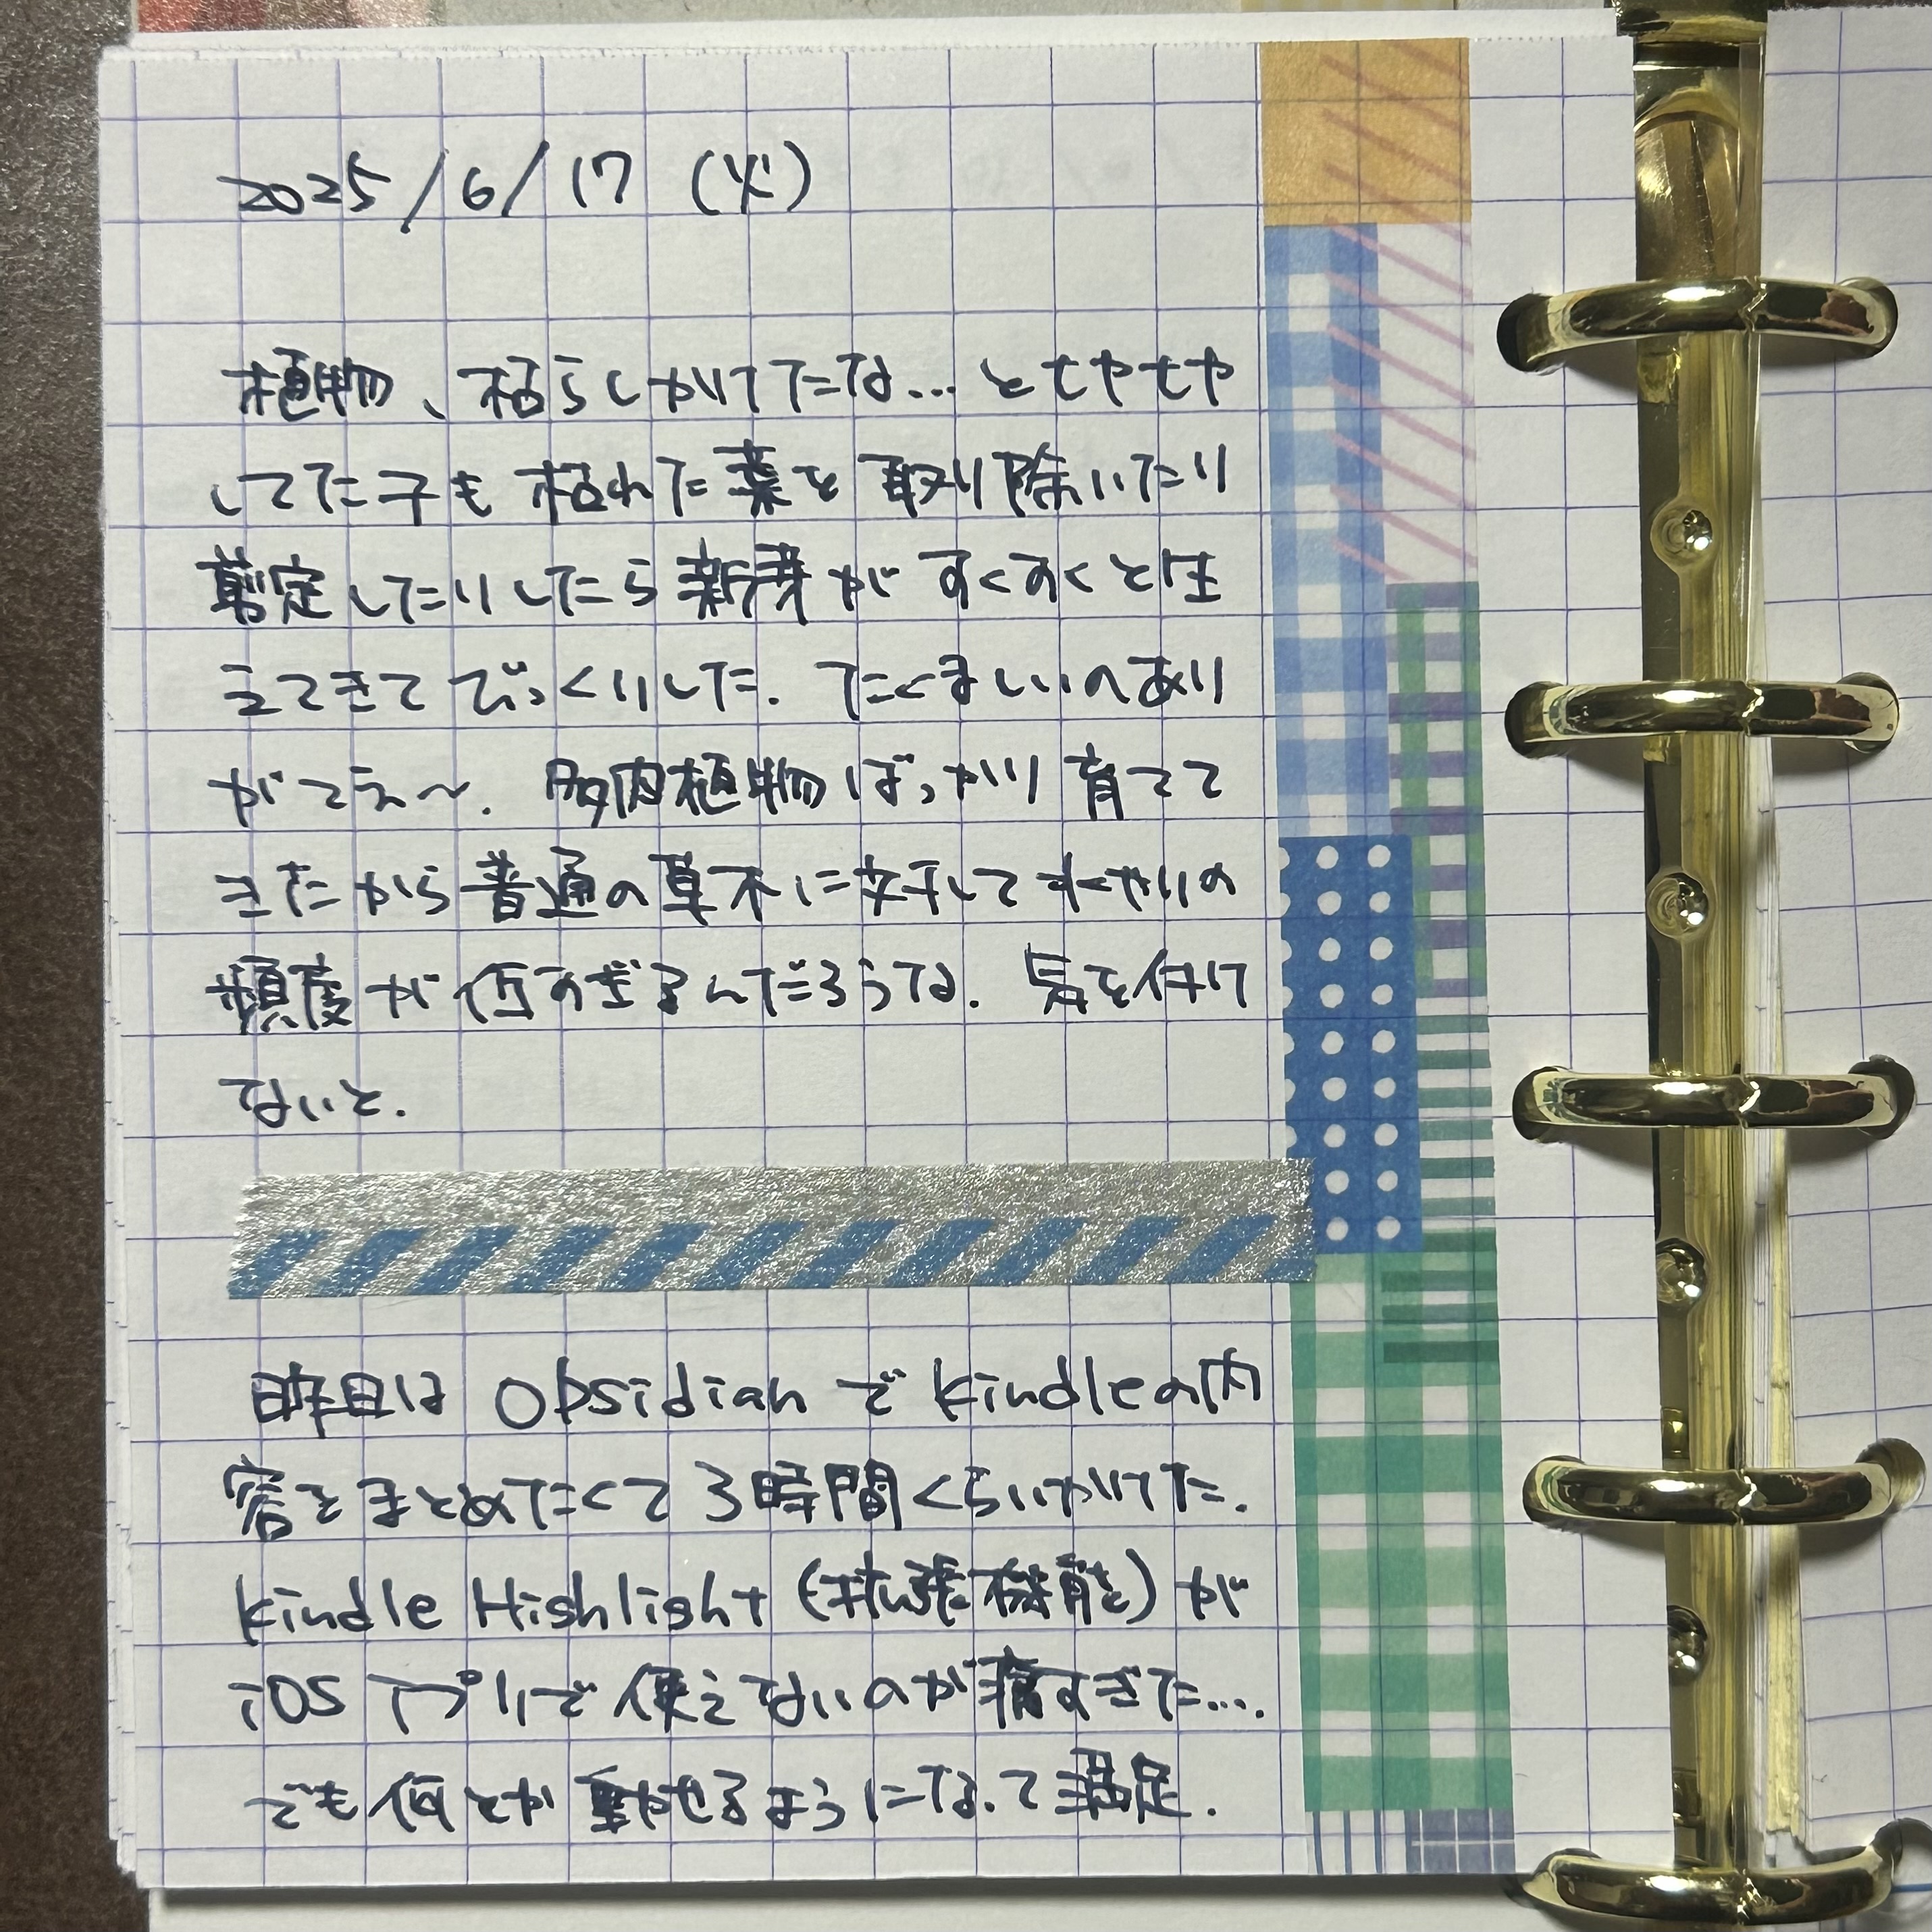 2025/6/17 (火)
植物、枯らしかけてたな…ともやもや
してた子も枯れた葉を取り除いたり
剪定したりしたら新芽がすくすくと生
えてきてびっくりした. たくましいのあり
がてえ〜. 多肉植物ばっかり育てて
きたから普通の草木に対して水やりの
頻度が低すぎるんだろうな. 気を付け
ないと.
昨日は Obsidian で kindleの内
容をまとめたくて3時間くらいかけた.
kindle Highlight (拡張機能) が
iOS アプリで使えないのが痛すぎた….
でも何とか動かせるようになって満足.